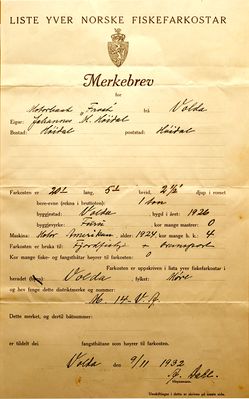 LISTE YVER NORSKE FISKEFARKOSTAR
Merkebrev
for
Motorbaat "Frosk" frå Volda
Eigar: Johannes K. Høidal
Bustad: Høidal poststad: Høidal
Farkosten er 20½ lang, 5½ breid, 2½ djup i romet
bere-evne (rekna i bruttotonn): 1 tonn
byggjestad: Volda, bygd i året: 1926
byggjeyrke: Furu kor mange master: 0
Maskina: Motor Amerikan alder: 1924, kor mange h. k.: 4
Farkosten er bruka til: Fjordfiske + transport
Kor mange fiske- og fangstbåtar høyrer til farkosten: 0
Farkosten er uppskriven i lista yver fiskefarkostar i
heradet Volda fylket: Møre
og hev fenge dette distriktsmerke og nummer:
M-14-V.D.
Dette merket, og dertil båtnummer:
er tildelt dei fangstbåtane som høyrer til farkosten.
Volda den 9/11 1932